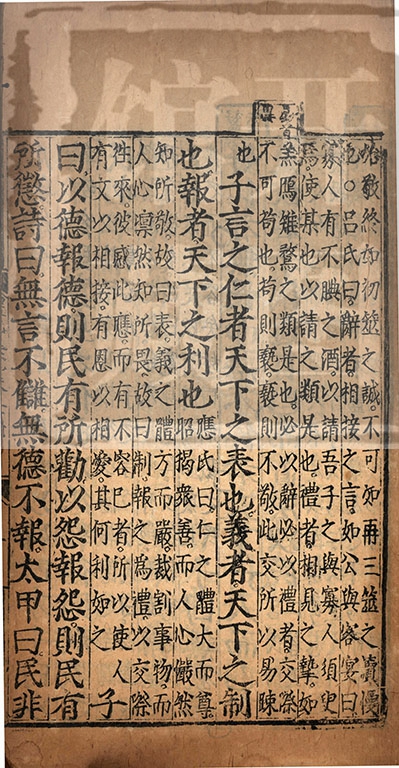 始敬終如初筮之誠不可如再三筮之瀆慢
也○呂氏曰辭者相接之言如公與客宴曰
寡人有不腆之酒以請吾子之與寡人須臾
焉使某也以請之類是也禮者相見之摯如
羔鴈雉鶩之類是也必以辭必以禮者交際
不可苟也苟則褻褻則不敬此交所以易踈
也 子言之仁者天下之表也義者天下之制
也報者天下之利也 應氏曰仁之體大而尊
昭揭衆善而人心儼然
知所敬故曰表義之體方而嚴裁割事物而
人心凜然知所畏故曰制報之為禮以交際
往來彼感此應而有不容已者所以使人
有文以相接有恩以相愛其何利如之 子
曰以德報德則民有所勸以怨報怨則民有
所懲詩曰無言不讎無德不報太甲曰民非